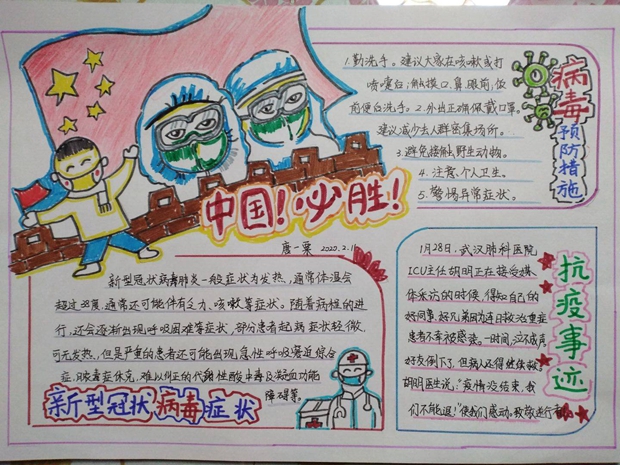 1.勤洗手。建议大家在咳嗽或打
喷嚏后;触摸口、鼻、眼前,饭
前便后洗手。2.外出正确佩戴口罩。
建议减少去人群密集场所。
3.避免接触野生动物。
4.注意个人卫生。
5.警惕异常症状。
病毒
预防措施
中国!必胜!
唐一粟 2020.2.11
新型冠状病毒肺炎一般症状为发热,通常体温会
超过38度,通常还可能伴有乏力、咳嗽等症状。随着病程的进
行,还会逐渐出现呼吸困难等症状,部份患者起病症状轻微,
可无发热,但是严重的患者还可能出现急性呼吸窘迫综合
症,脓毒症休克,难以纠正的代谢性酸中毒及凝血功能
障碍等。
新型冠状病毒症状
1月28日,武汉肺科医院
ICU主任胡明正在接受媒
体采访的时候,得知自己的
好同事、好兄弟因为连日救治重症
患者不幸被感染。一时间,泣不成声
好友倒下了,但病人还得继续救。
胡明医生说:“疫情没结束,我
们不能退!”使我们感动。致敬逆行者
抗疫事迹